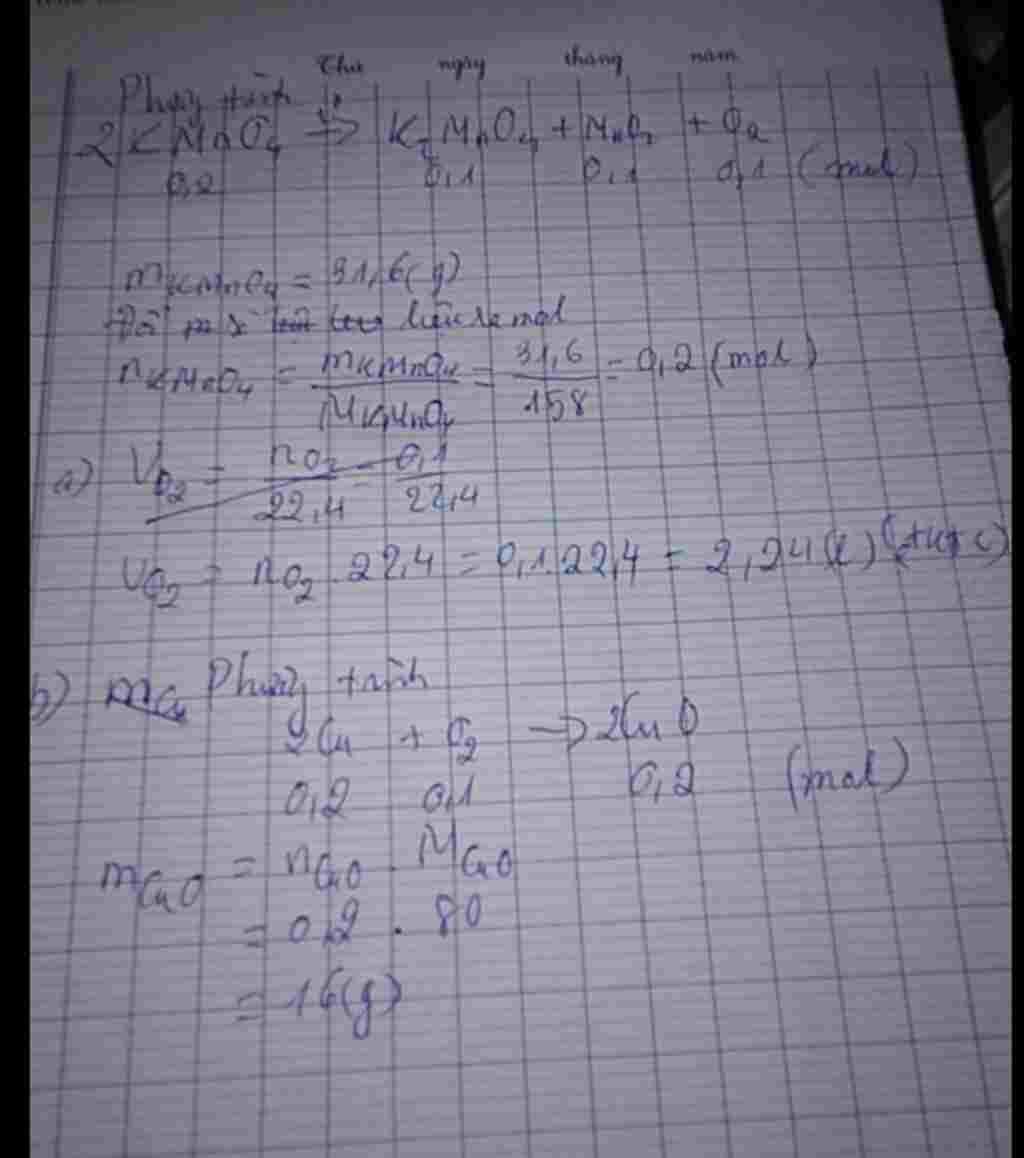 Thứ ngày tháng năm
Phương trình
2KMnO4 -t°-> K2MnO4 + MnO2 + O2
0,2 0,1 0,1 0,1 (mol)
mKMnO4 = 31,6(g)
mol
nKMnO4 = mKMnO4/MKMnO4 = 31,6/158 = 0,2 (mol)
a) VO2 = nO2/22,4 = 0,1/22,4
VO2 = nO2 . 22,4 = 0,1.22,4 = 2,24(l) (đktc)
b) mCu Phương trình
2Cu + O2 -> 2CuO
0,2 0,1 0,2 (mol)
mCuO = nCuO . MCuO
= 0,2 . 80
= 16(g)